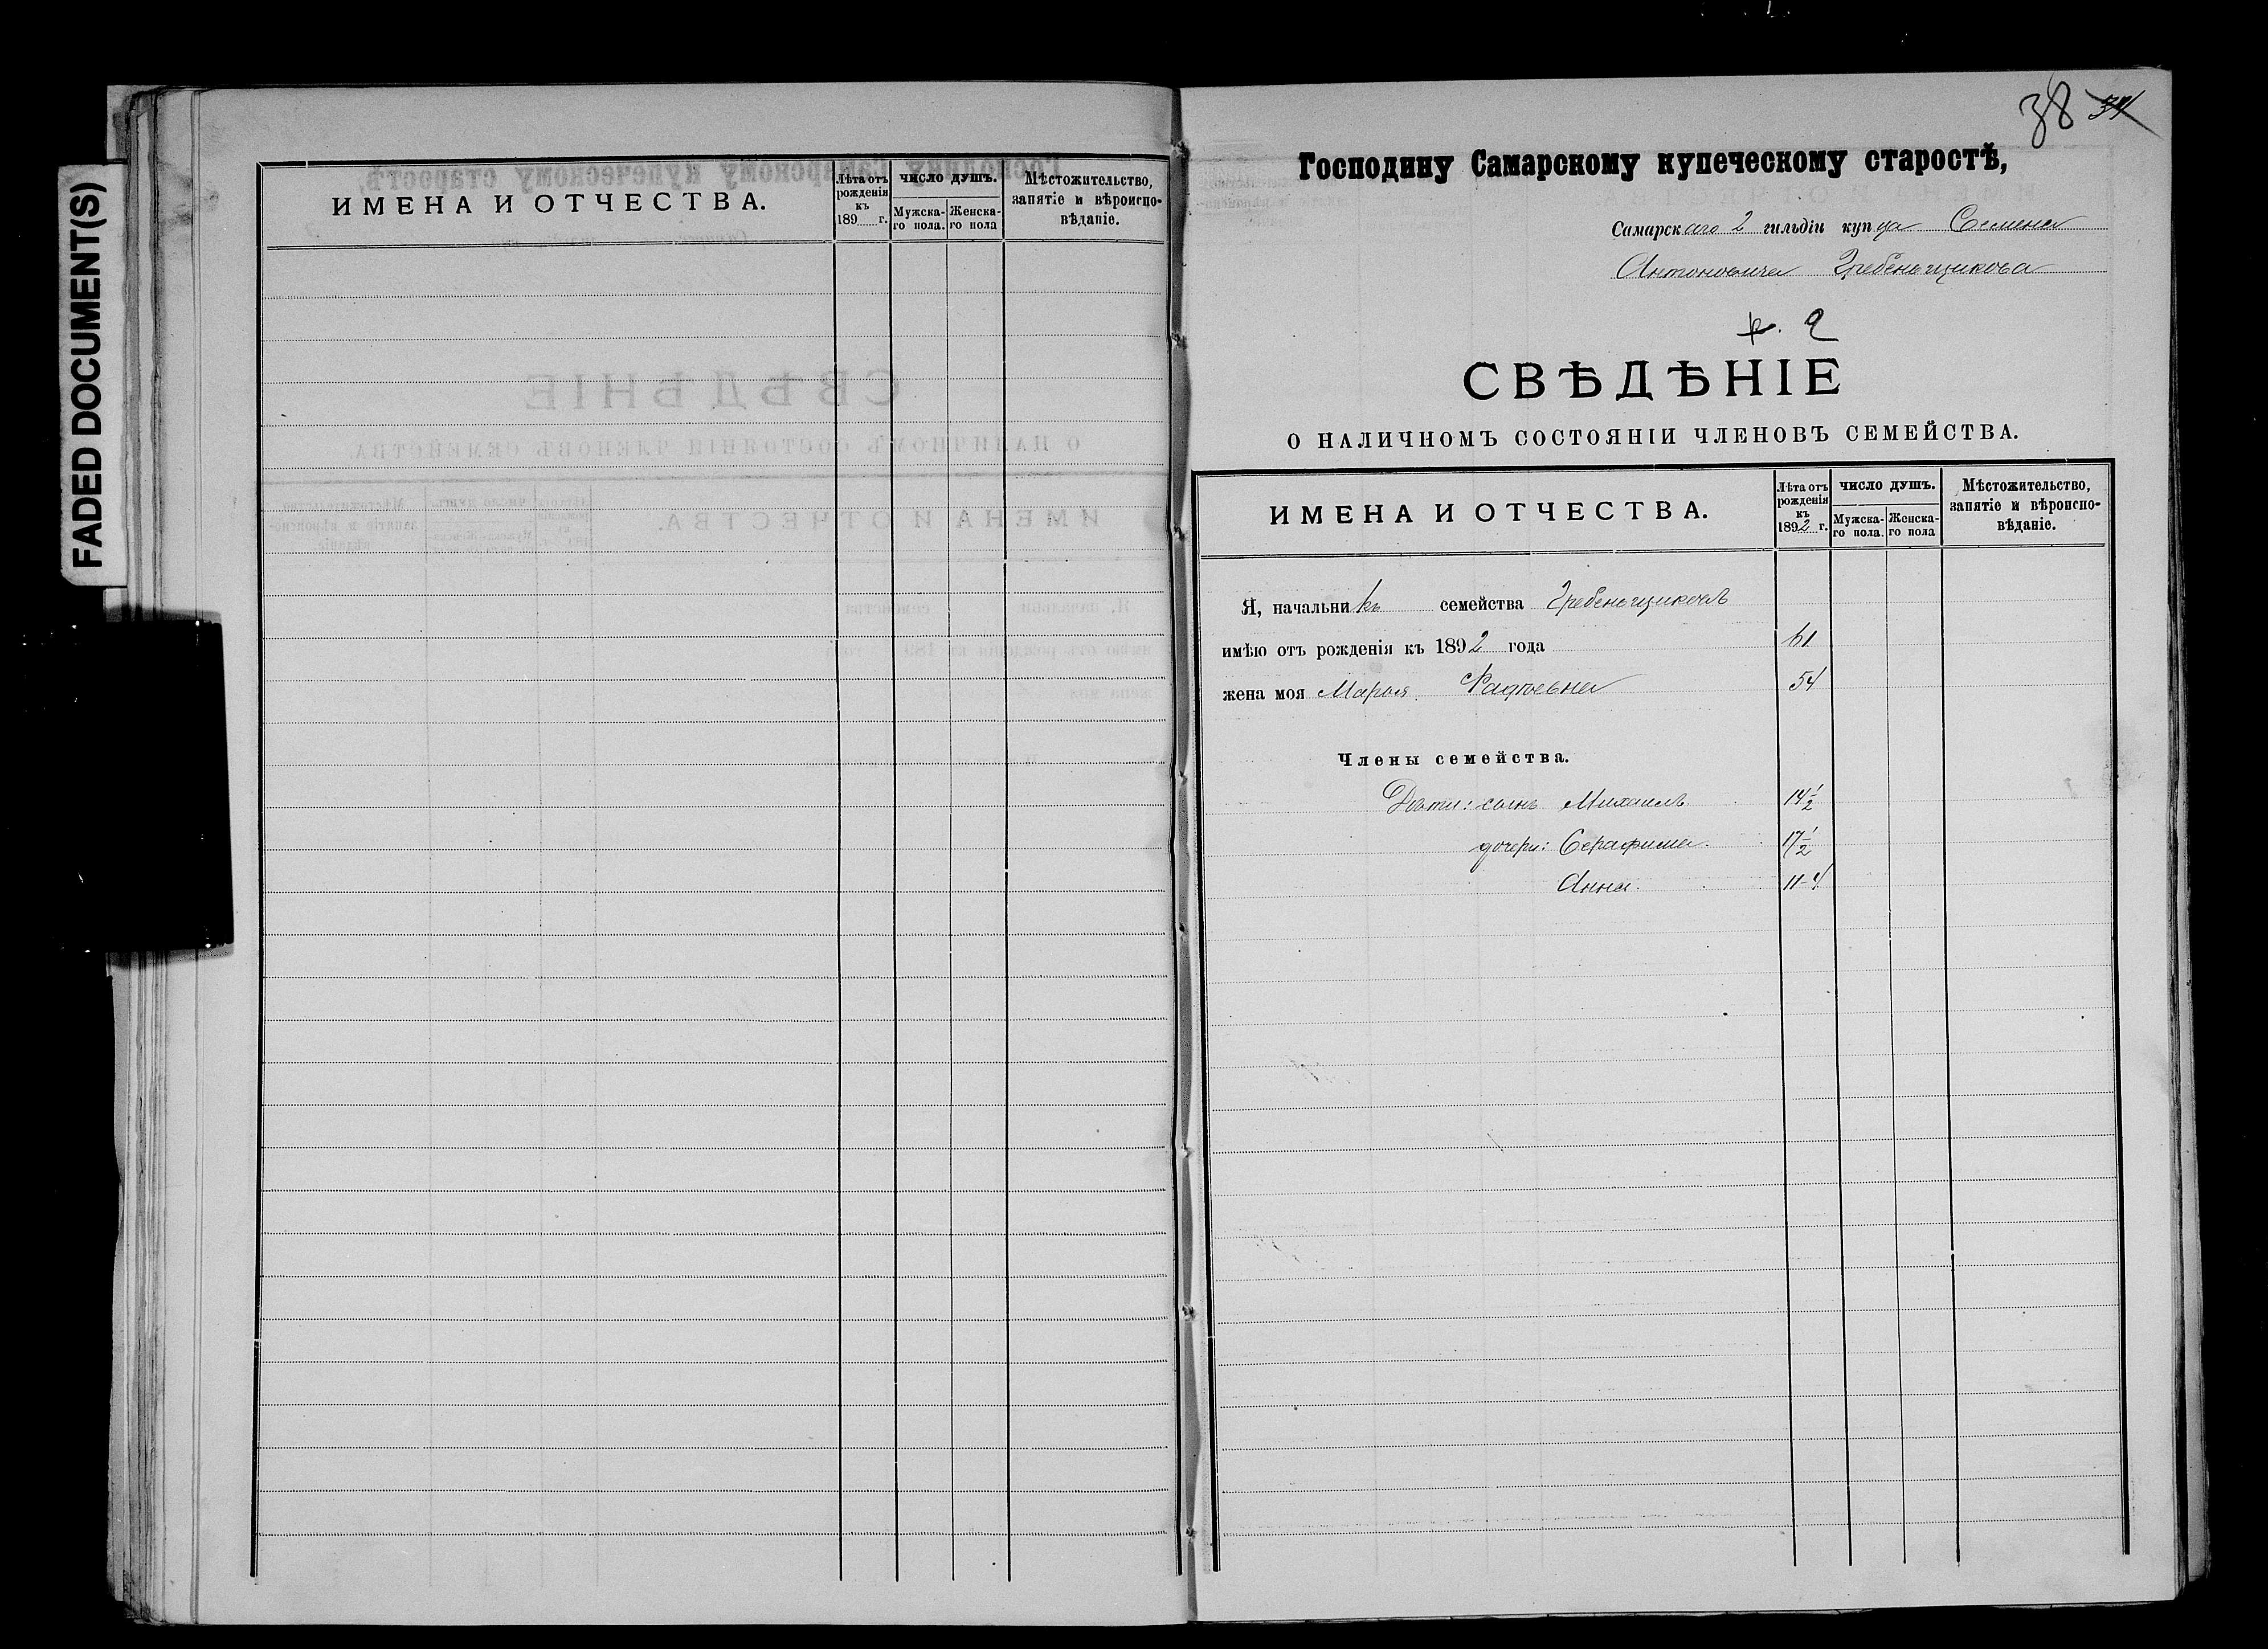 FADED DOCUMENT(S)
ИМЕНА И ОТЧЕСТВА.
Лѣта отъ рожденія къ 189 г.
ЧИСЛО ДУШЪ.
Мужска-го пола.
Женска-го пола
Мѣстожительство, запятіе и вѣроиспо-вѣданіе.
38 34
Господину Самарскому купеческому старостѣ,
Самарскаго 2 гильдіи купца Семена
Антоновича Гребеньщикова
2
СВѢДѢНІЕ
О НАЛИЧНОМЪ СОСТОЯНІИ ЧЛЕНОВЪ СЕМЕЙСТВА.
ИМЕНА И ОТЧЕСТВА.
Лѣта отъ рожденія къ 1892 г.
ЧИСЛО ДУШЪ.
Мужска-го пола.
Женска-го пола
Мѣстожительство, запятіе и вѣроиспо-вѣданіе.
Я, начальникъ семейства Гребеньщиковъ
имѣю отъ рожденія къ 1892 года 61
жена моя Марья 54
Члены семейства.
Дѣти: сынъ Михаилъ 14 1/2
дочери: Серафима. 17 1/2
Анна. 11